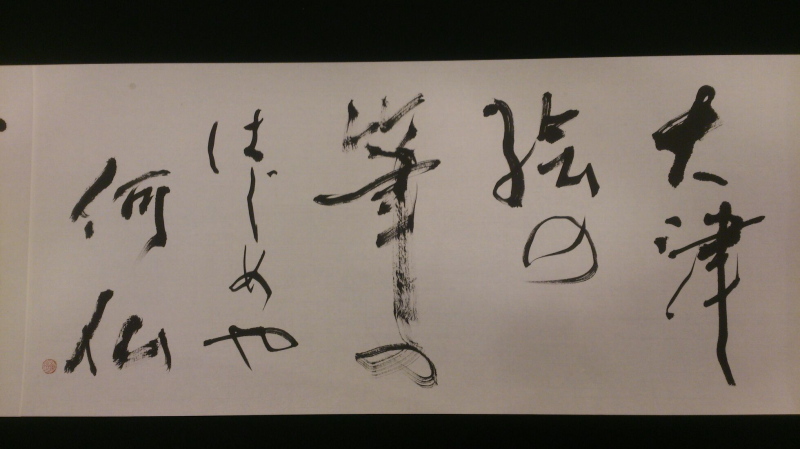 大津
絵の
筆の
はじめや
何仏